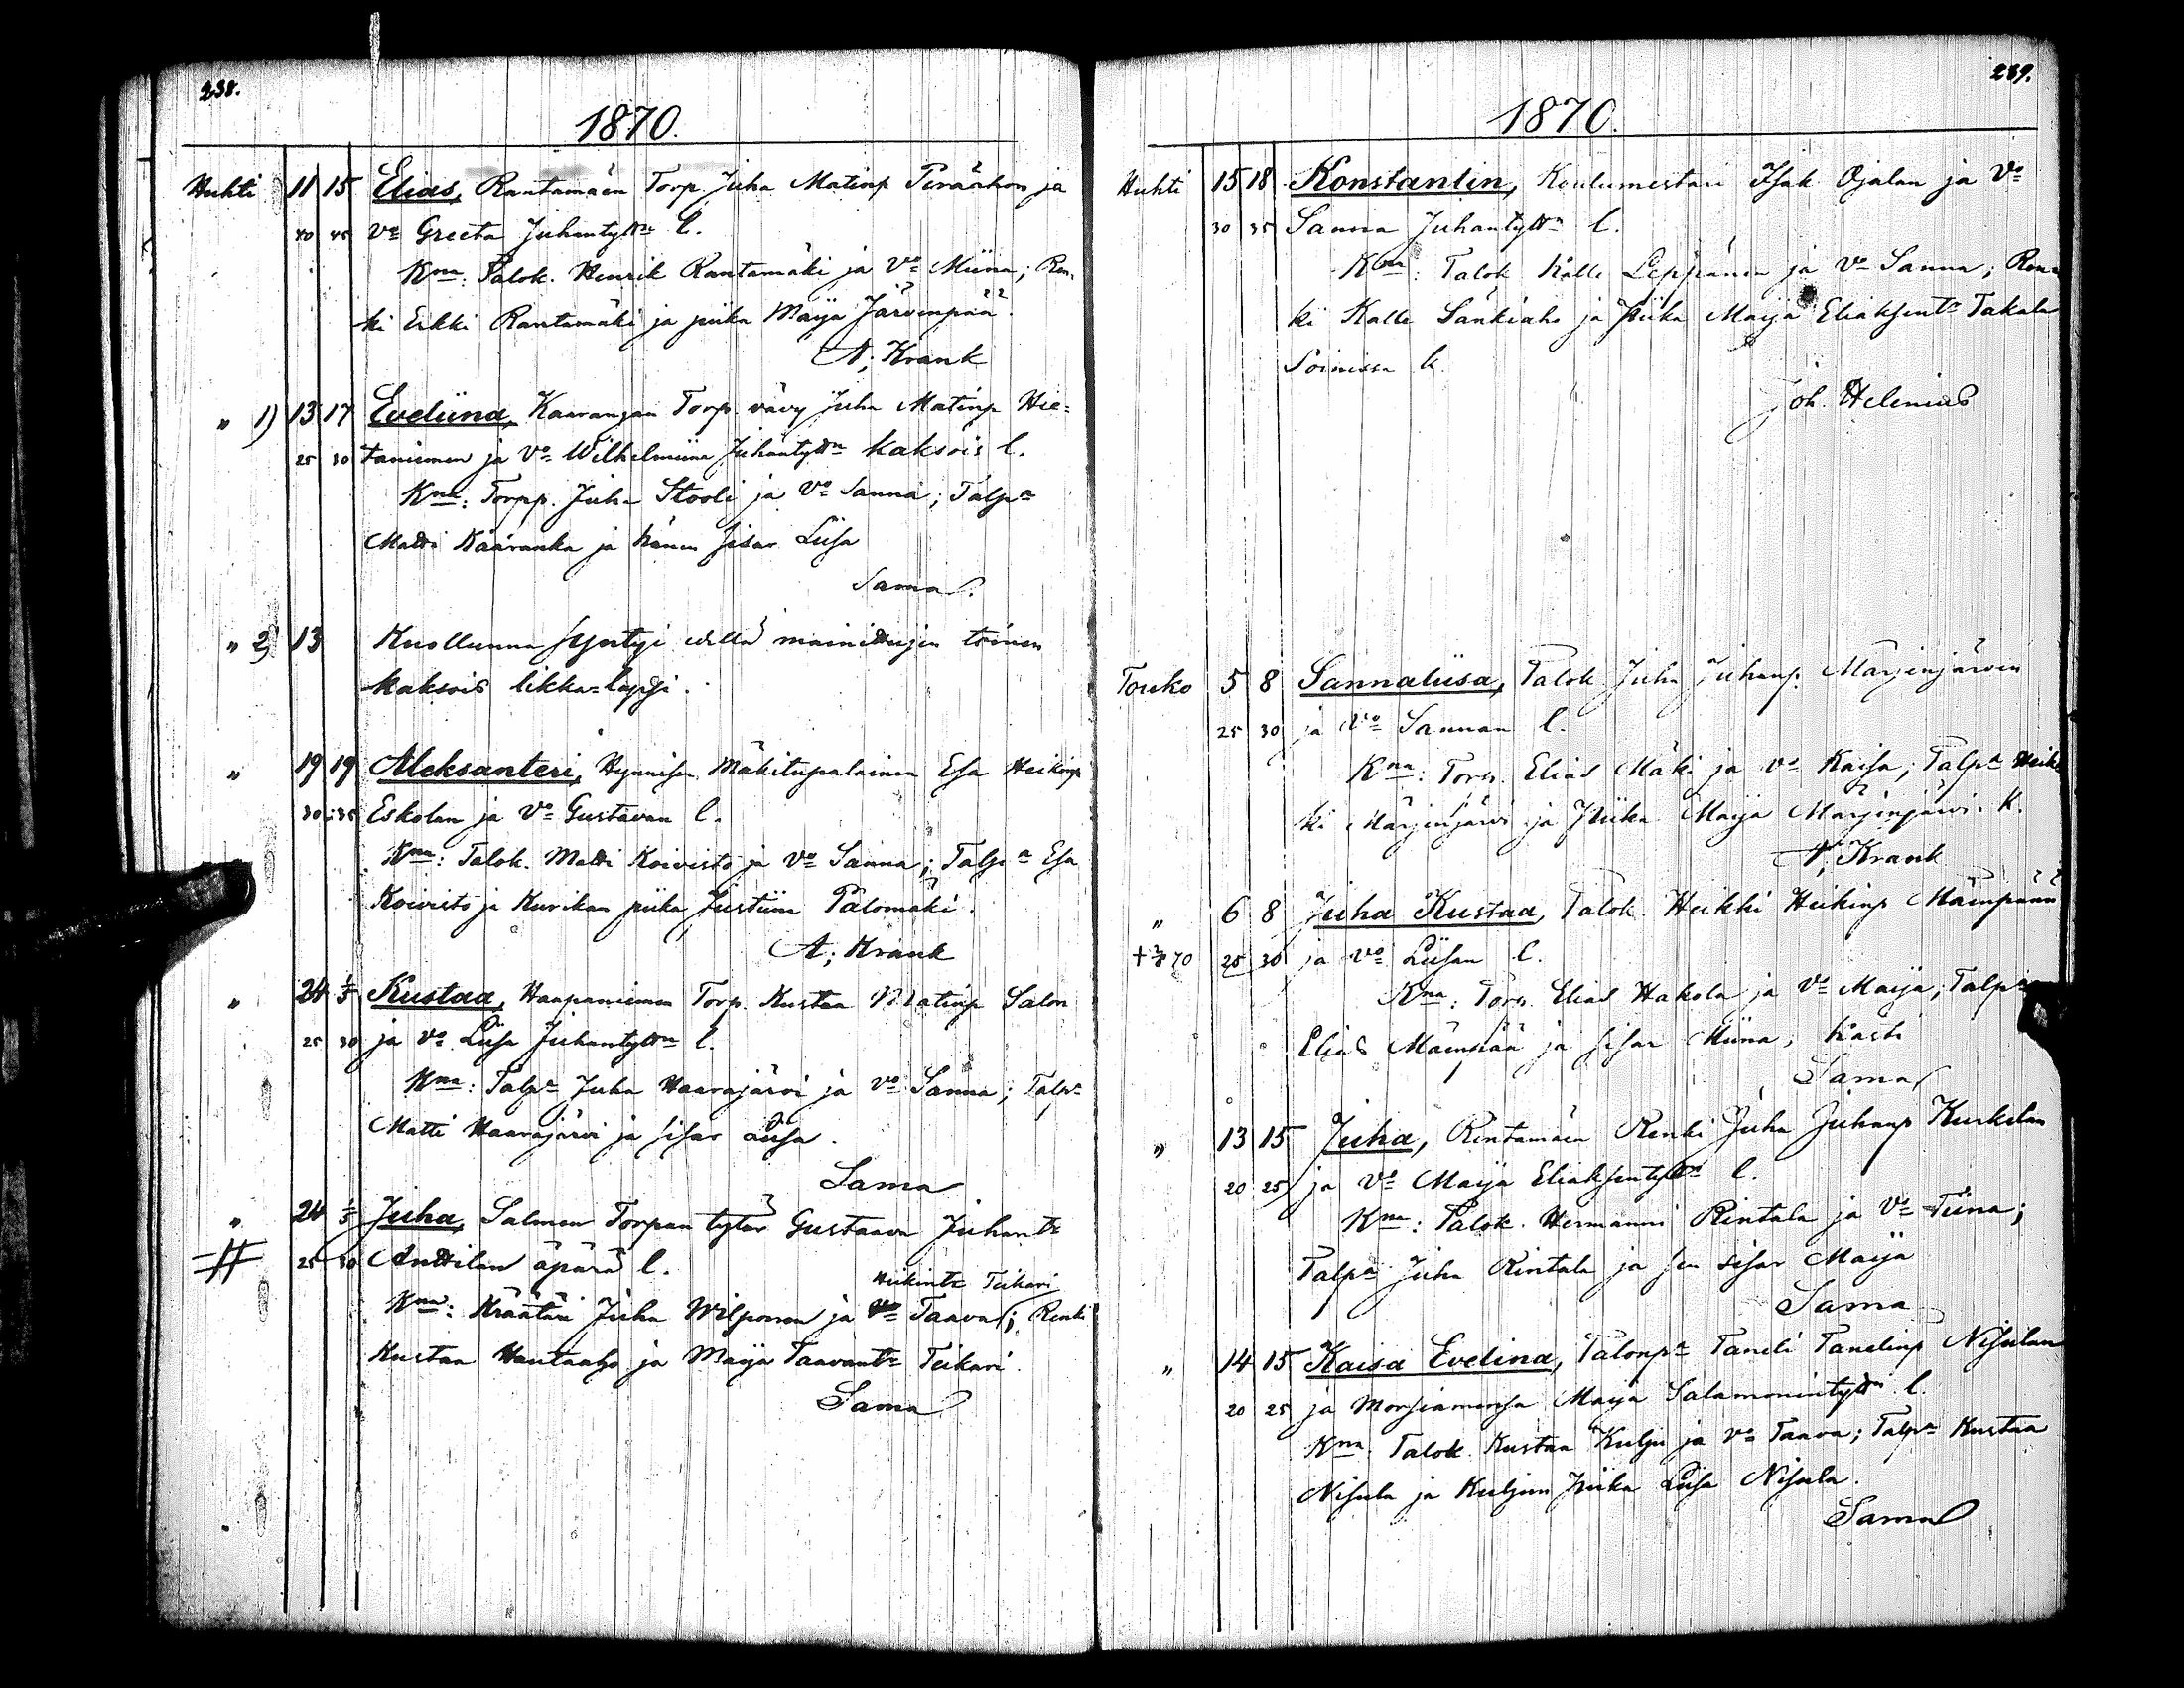 238.
1870.
Huhti 11 15 Elias, Rantamäen Torp. Juha Matinp Peräahon ja
40 45 Vo Greeta Juhantyttn l.
Kna: Talok. Henrik Rantamäki ja Vo Miina; Ren-
ki Erkki Rantamäki ja piika Maija Järvenpää.
A; Krank
" 1) 13 17 Eveliina, Kaarangan Torp. vävy Juha Matinp Hie-
25 30 taniemen ja Vo Wilhelmiina Juhantyttn kaksois l.
Kna: Torpp. Juha Stooli ja Vo Sanna; Talpa
Matti Kaaranka ja hänen sisar Liisa
Sama.
" 2) 13 Kuollunna syntyi edellä mainittujen toinen
kaksois likka-lapsi.
" 19 19 Aleksanteri, Hynnisen Mäkitupalainen Esa Heikinp
30 35 Eskolan ja Vo Gustavan l.
Kna: Talok. Matti Koivisto ja Vo Sanna; Talpa Esa
Koivisto ja Kurikan piika Justiina Palomäki.
A; Krank
" 24 1/5 Kustaa, Haapaniemen Torp. Kustaa Matinp Salon
25 30 ja Vo Liisa Juhantyttn l.
Kna: Talpa Juha Haarajärvi ja Vo Sanna; Talpa
Matti Haarajärvi ja sisar Liisa.
Sama
" 24 1/5 Juha, Salmen Torpan tytär Gustaava Juhantr
25 30 Anttilan äpärä l.
Heikintr Teikari
Kna: Kräätäri Juha Wilponen ja Vo Taava; Renki
Kustaa Hautaaho ja Maija Taavantr Teikari.
Sama
239.
1870.
Huhti 15 18 Konstantin, Koulumestari Isak Ojalan ja Vo
30 35 Sanna Juhantyttn l.
Kna: Talok Kalle Leppänen ja Vo Sanna; Ren-
ki Kalle Sänkiaho ja Piika Maija Eliaksentr Takala
Soinissa k.
Joh. Helenius
Touko 5 8 Sannaliisa, Talok Juha Juhanp. Märjenjärven
25 30 ja Vo Sannan l.
Kna: Torp. Elias Mäki ja Vo Kaisa; Talpa Heik-
ki Märjenjärvi ja Piika Maija Märjenjärvi. K.
A; Krank
" 6 8 Juha Kustaa, Talok. Heikki Heikinp Mäenpään
+ 2/8 70 25 30 ja Vo Liisan l.
Kna: Torp. Elias Hakola ja Vo Maija; Talpa
Elias Mäenpää ja sisar Miina;
Sama
" 13 15 Juha, Rintamäen Renki Juha Juhanp Kurkelan
20 25 ja Vo Maija Eliaksentyttn l.
Kna: Talok. Hermanni Rintala ja Vo Tiina;
Talpa Juha Rintala ja sen sisar Maija
Sama
" 14 15 Kaisa Evelina, Talonpa Taneli Tanelinp Nisulan
20 25 ja Morsiamensa Maija Salamonintyttn l.
Kna. Talok Kustaa Kulju ja Vo Taava; Talpa Kustaa
Nisula ja Kuljun Piika Liisa Nisula.
Sama